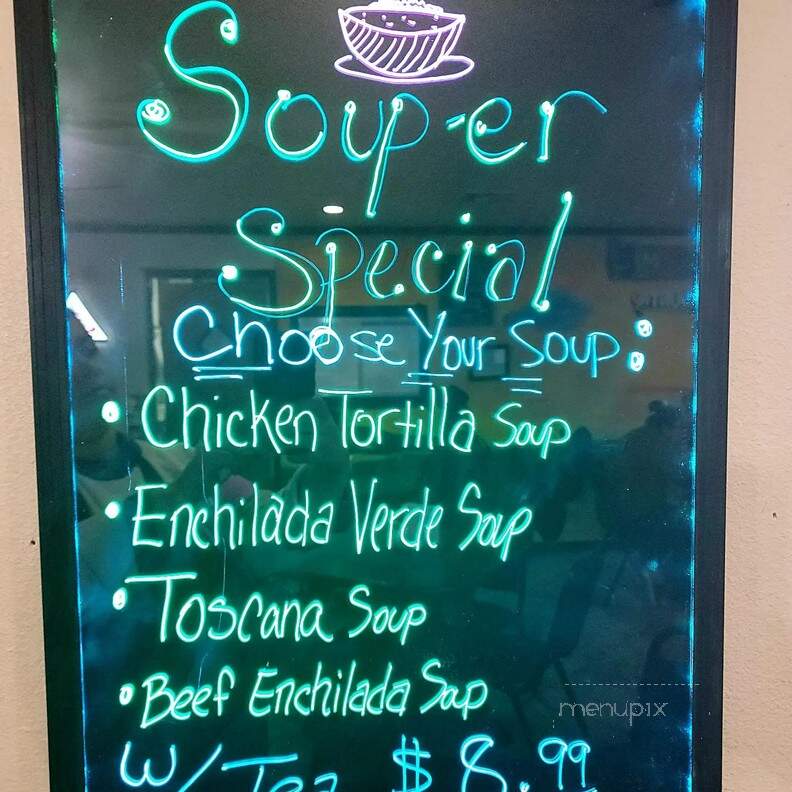 Soup-er
Special
Choose Your Soup:
• Chicken Tortilla Soup
• Enchilada Verde Soup
• Toscana Soup
• Beef Enchilada Soup
W/Tea $8.99
menupix